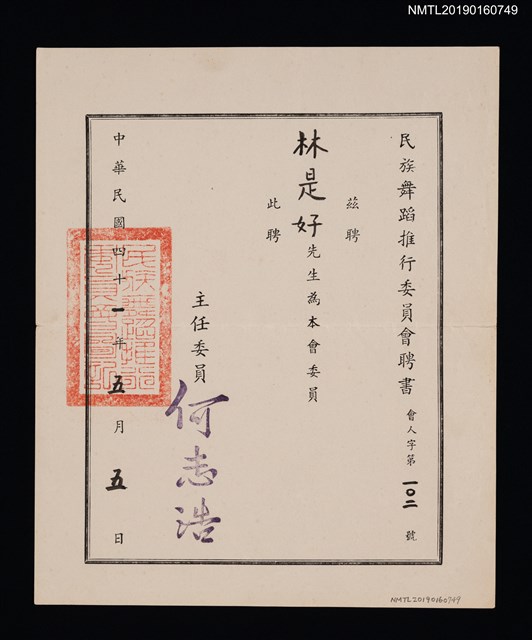 NMTL20190160749
民族舞蹈推行委員會聘書
會人字第一〇二號
茲聘
林是好先生為本會委員
此聘
主任委員
何志浩
中華民國四十一年五月五日
NMTL20190160749